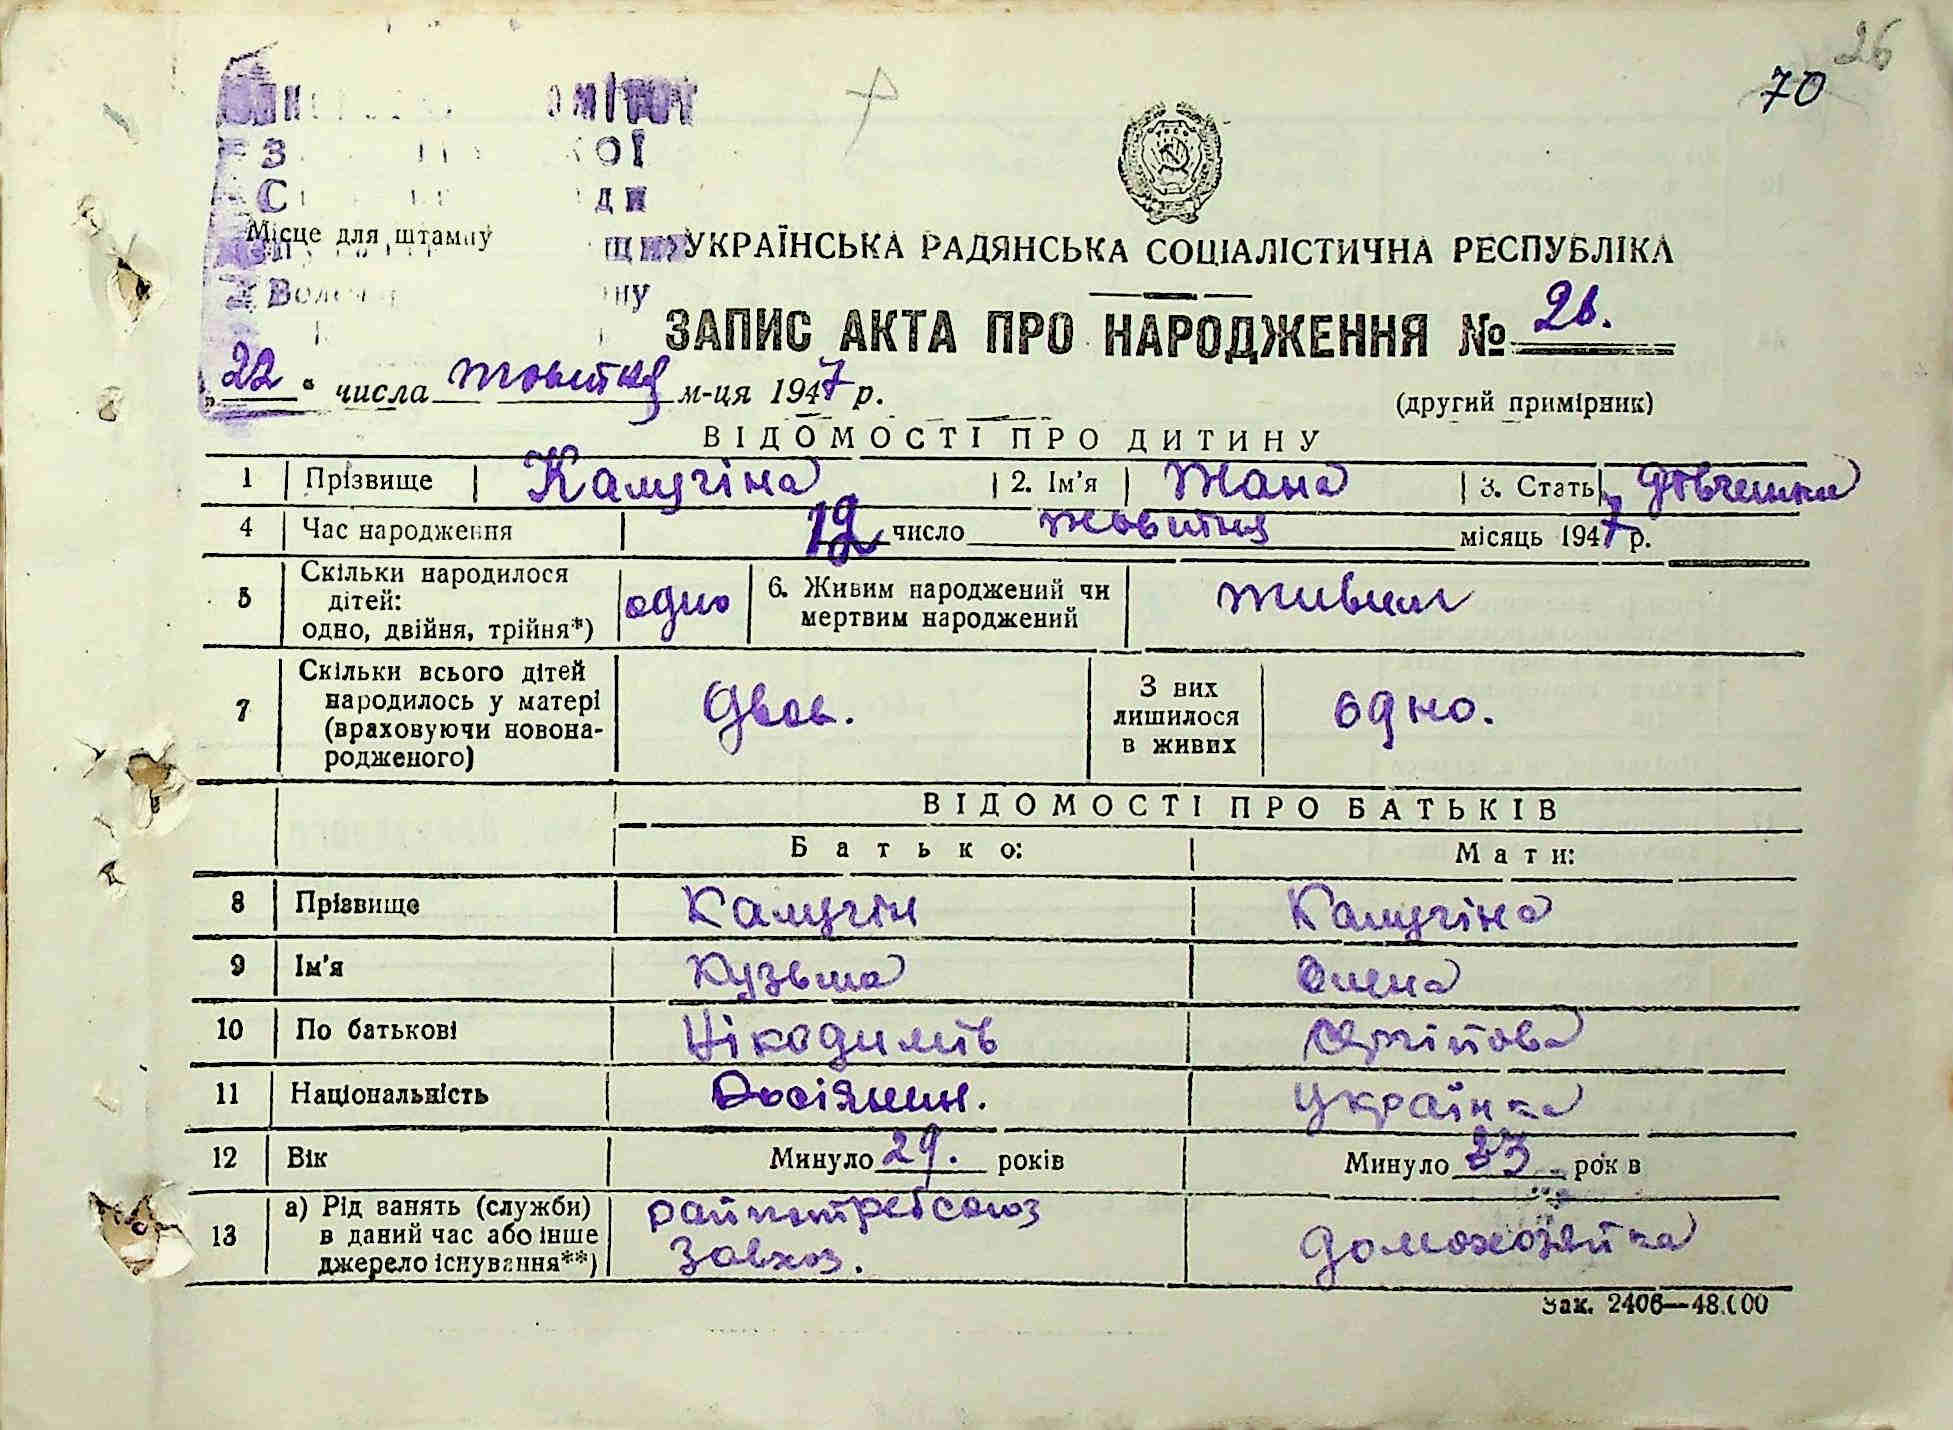 26
70
Місце для штампу
УКРАЇНСЬКА РАДЯНСЬКА СОЦІАЛІСТИЧНА РЕСПУБЛІКА
ЗАПИС АКТА ПРО НАРОДЖЕННЯ № 26.
„22" числа жовтня м-ця 1947 р.
(другий примірник)
ВІДОМОСТІ ПРО ДИТИНУ
1 Прізвище Калугіна 2. Ім'я Жана 3. Стать дівчинка
4 Час народження 19 число жовтня місяць 1947 р.
5 Скільки народилося дітей: одно, двійня, трійня*) одно 6. Живим народжений чи мертвим народжений живим
7 Скільки всього дітей народилось у матері (враховуючи новонародженого) двоє. З них лишилося в живих одно.
ВІДОМОСТІ ПРО БАТЬКІВ
Батько: Мати:
8 Прізвище Калугін Калугіна
9 Ім'я Кузьма Олена
10 По батькові Нікодимів
11 Національність Росіянин. Українка
12 Вік Минуло 29. років Минуло 23 років
13 а) Рід занять (служби) в даний час або інше джерело існування**) райпотребсоюз завхоз. домохозяйка
Зак. 2406—48.000